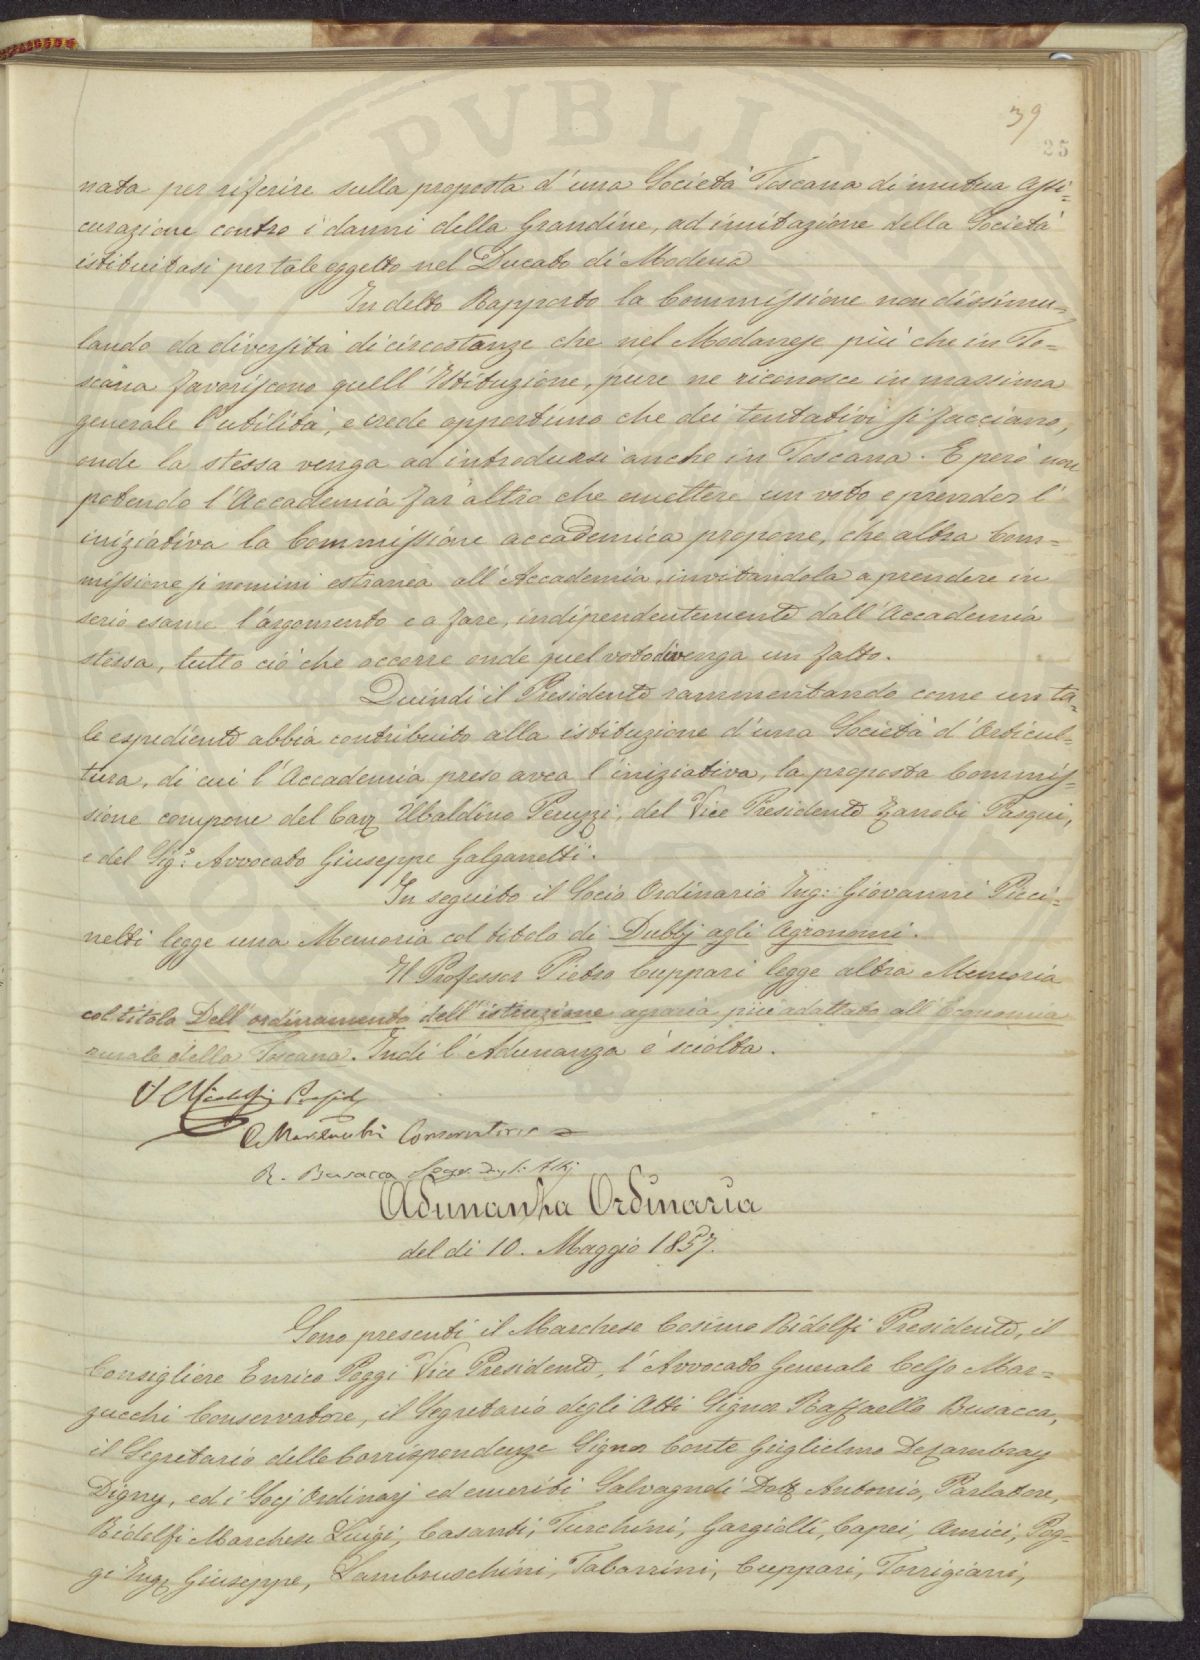 39
25
nata per riferire sulla proposta d'una Società Toscana di mutua Assi=
curazione contro i danni della Grandine, ad imitazione della Società
istituitasi per tale oggetto nel Ducato di Modena
In detto Rapporto la Commissione non dissimu=
lando da diversità di circostanze che nel Modanese più che in To=
scana favoriscono quell'Istituzione, pure ne riconosce in massima
generale l'utilità, e crede opportuno che dei tentativi si facciano,
onde la stessa venga ad introdursi anche in Toscana. E però non
potendo l'Accademia far'altro che emettere un voto e prender l'
iniziativa la Commissione accademica propone, che altra Com=
missione si nomini estranea all'Accademia, invitandola a prendere in
serio esame l'argomento e a fare, indipendentemente dall'Accademia
stessa, tutto ciò che occorre onde quel voto divenga un fatto.
Quindi il Presidente rammentando come un ta=
le espediente abbia contribuito alla istituzione d'una Società d'Orticul=
tura, di cui l'Accademia preso avea l'iniziativa, la proposta Commis=
sione compone del Cav Ubaldino Peruzzi, del Vice Presidente Zanobi Pasqui,
e del Sig: Avvocato Giuseppe Galganetti.
In seguito il Socio Ordinario Ing: Giovanni Picci=
netti legge una Memoria col titolo di Dubbj agli Agronomi.
Il Professor Pietro Cuppari legge altra Memoria
col titolo Dell'ordinamento dell'istruzione agraria più adattato all'Economia
rurale della Toscana. Indi l'Adunanza è sciolta.
C Ridolfi Presid
C Marzucchi Conservatore
R. Busacca Segr. degli Atti
Adunanza Ordinaria
del di 10. Maggio 1857.
Sono presenti il Marchese Cosimo Ridolfi Presidente, il
Consigliere Enrico Poggi Vice Presidente, l'Avvocato Generale Celso Mar=
zucchi Conservatore, il Segretario degli Atti Signor Raffaello Busacca,
il Segretario delle Corrispondenze Signor Conte Guglielmo DeCambray
Digny, ed i Socj Ordinarj ed emeriti Salvagnoli Dott Antonio, Parlatore,
Ridolfi Marchese Luigi, Casanti, Turchini, Gargiolli, Capei, Amici, Pog=
gi Ing Giuseppe, Lambruschini, Tabarrini, Cuppari, Torrigiani,